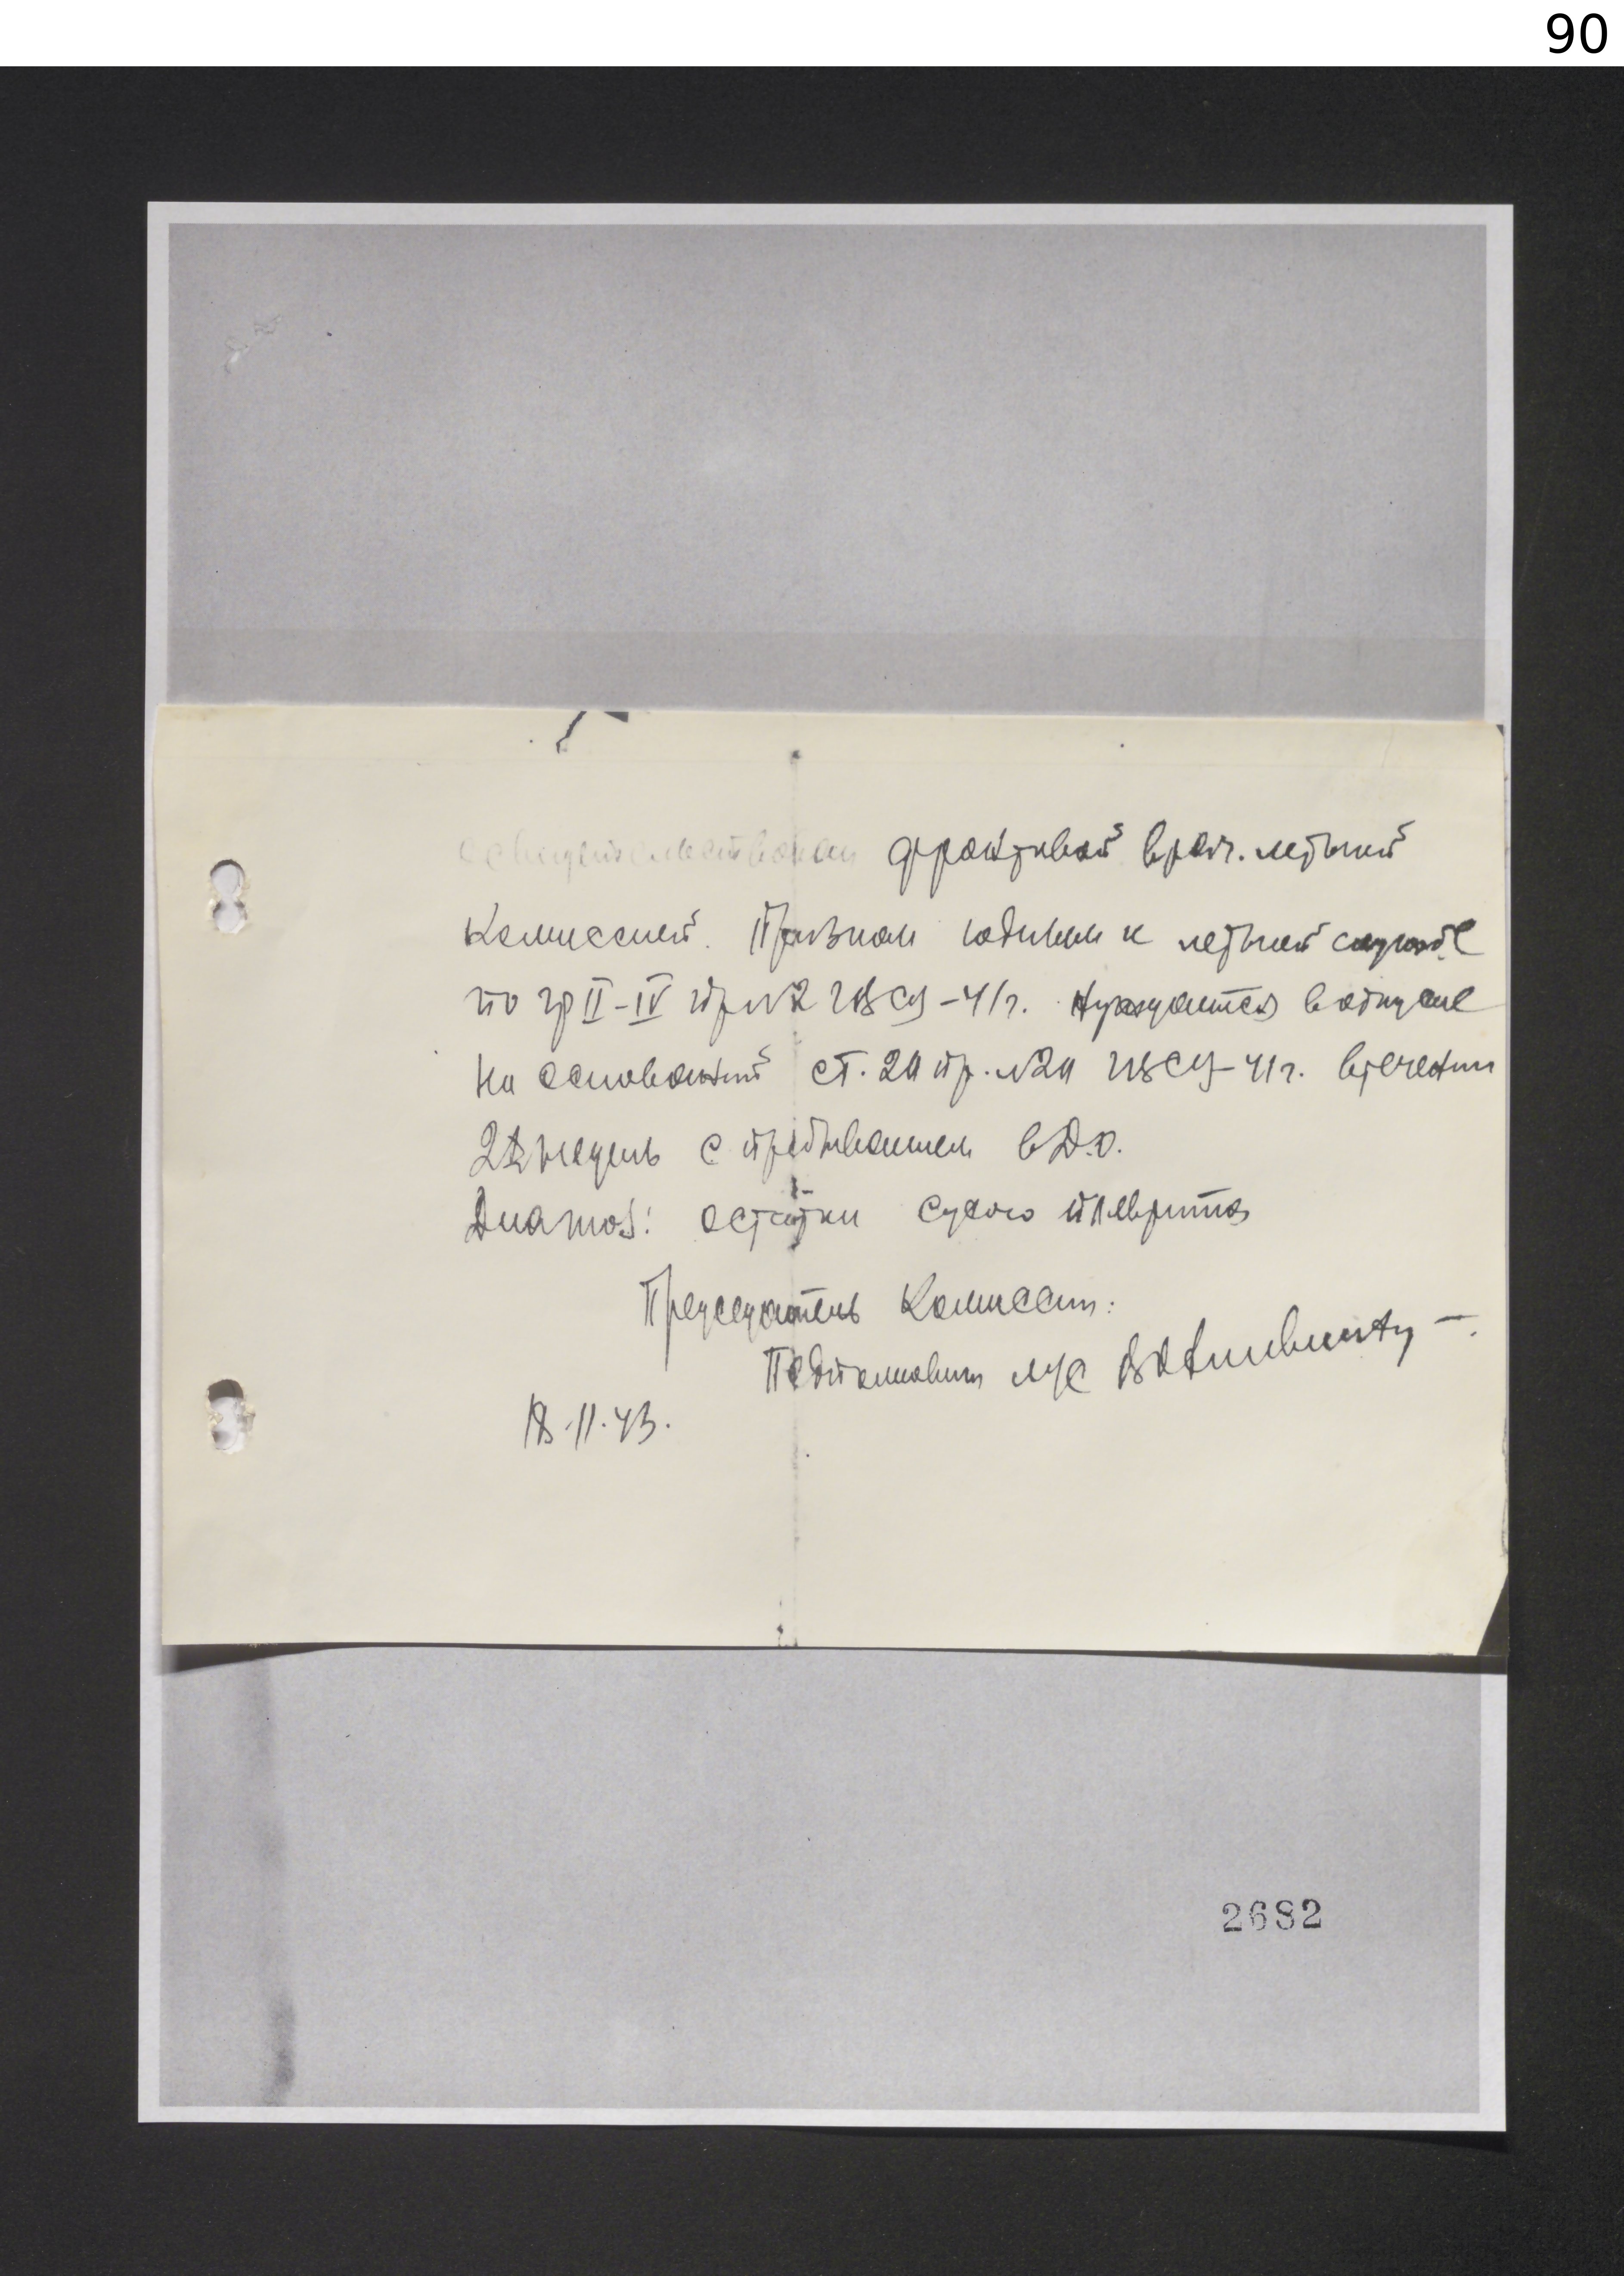 90
освидетельствован фронтовой врач. летной
Комиссией. Признан годным к летной службе
по гр II-IV пр №2 ГВСУ-41г. Нуждается в отпуске
На оснований ст. 2А пр. №2А ГВСУ-41г. в течении
2х недель с пребыванием в Д.О.
Диагноз: остатки сухого плеврита
Председатель Комиссии:
Подполковник м/с
18.11.43.
2682